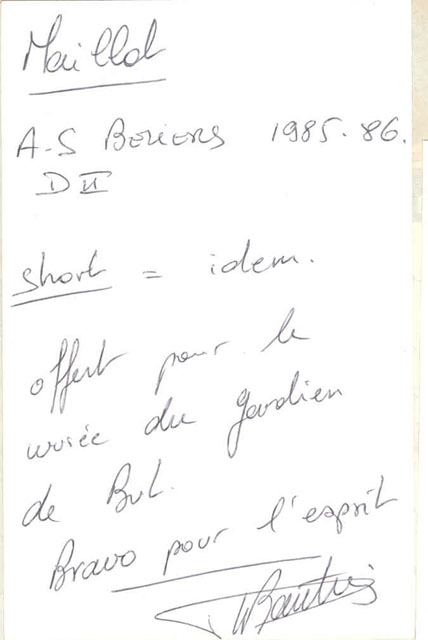 Maillot
A-S BEZIERS 1985-86.
D II
short = idem.
offert pour le
musée du gardien
de But.
Bravo pour l'esprit